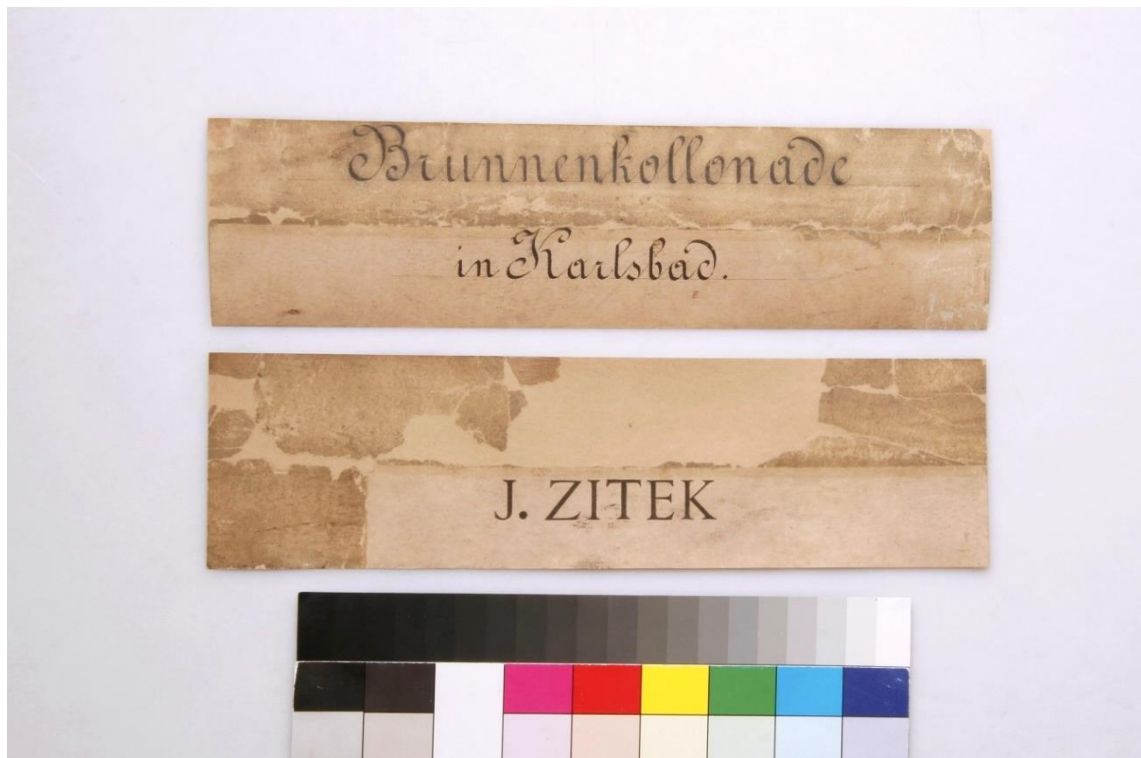 Brunnenkollonade
in Karlsbad.
J. ZITEK